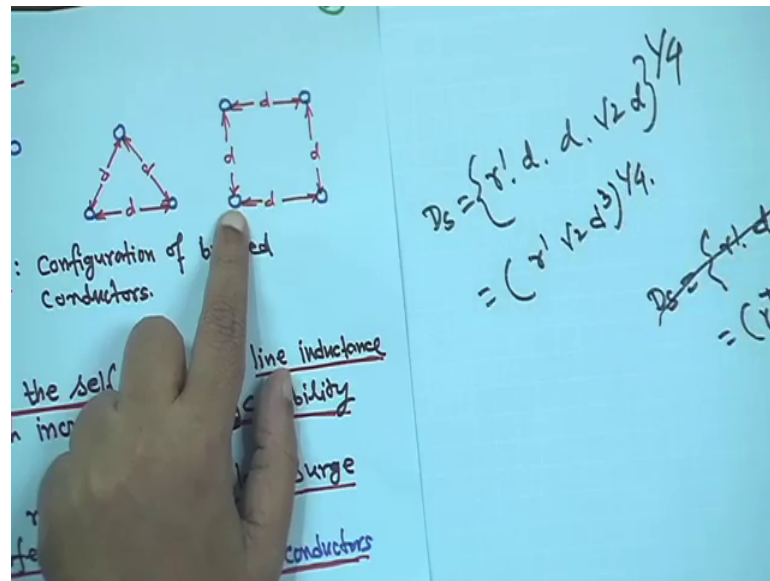 d
d
d
d
d
d
d
: Configuration of
conductors.
the self line inductance
bility
surge
conductors
Ds = {r'. d. d. √2 d}^1/4
= (r' √2 d³)^1/4.
Ds = {r'. d
= (r'